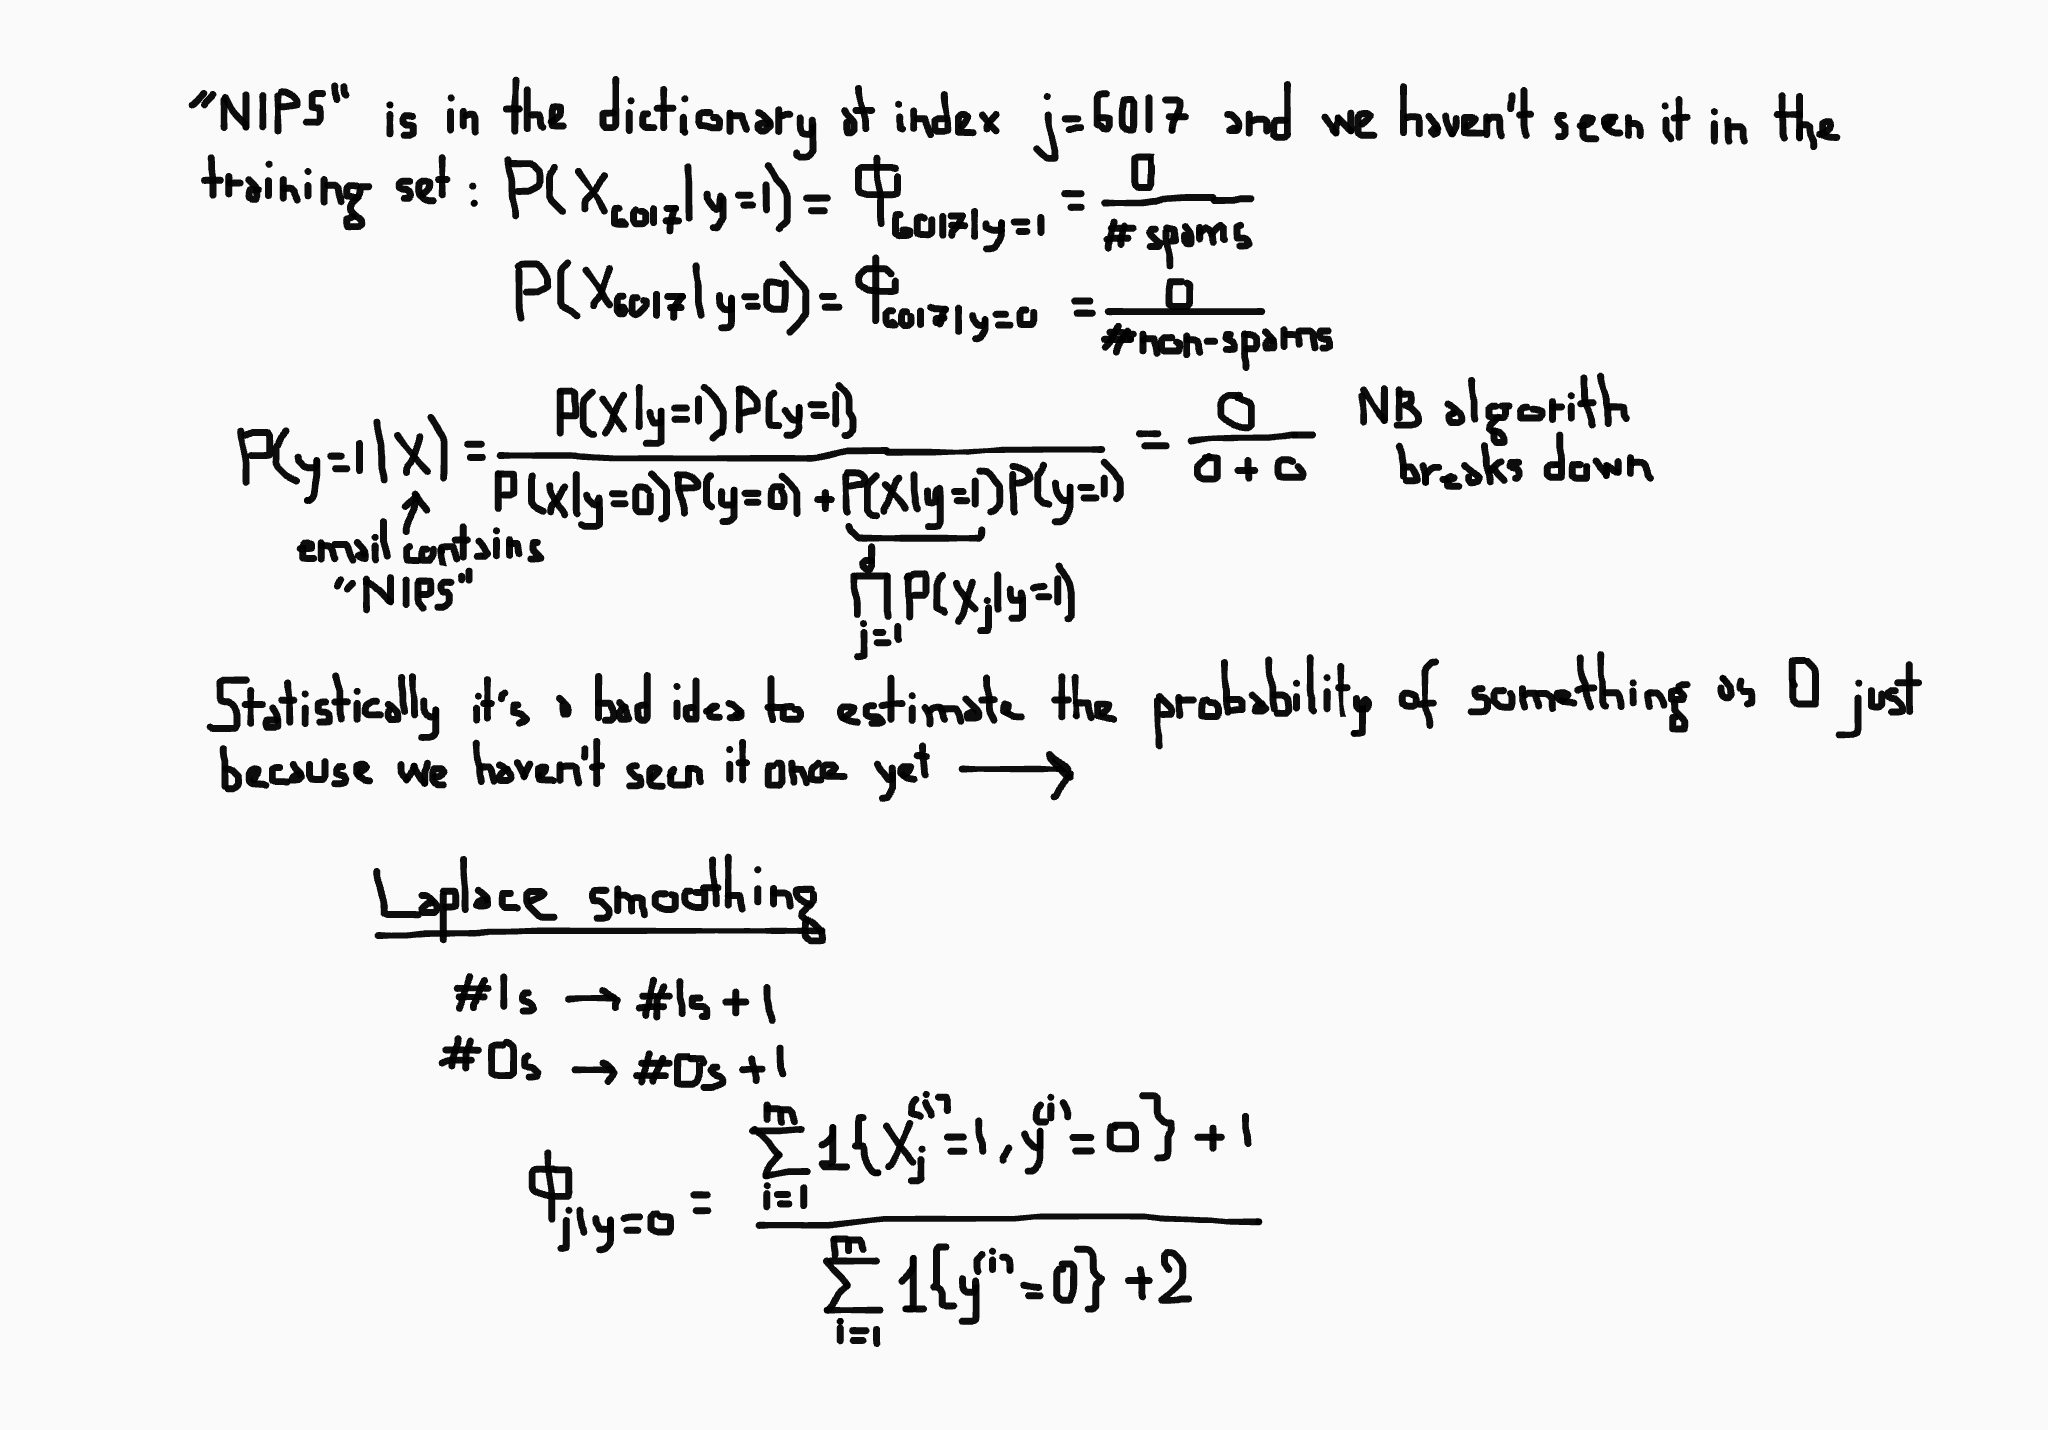 "NIPS" is in the dictionary at index j=6017 and we haven't seen it in the
training set: P(X₆₀₁₇|y=1) = ϕ₆₀₁₇|y=1 = 0 / # spams
P(X₆₀₁₇|y=0) = ϕ₆₀₁₇|y=0 = 0 / #non-spams
P(y=1|X) = P(X|y=1)P(y=1) / P(X|y=0)P(y=0) + P(X|y=1)P(y=1) = 0 / 0+0 NB algorith
breaks down
email contains
"NIPS"
∏_{j=1}^{d} P(X_j|y=1)
Statistically it's a bad idea to estimate the probability of something as 0 just
because we haven't seen it once yet →
Laplace smoothing
#1s → #1s + 1
#0s → #0s + 1
ϕ_{j|y=0} = ∑_{i=1}^{m} 1{X_j^{(i)}=1, y^{(i)}=0} + 1 / ∑_{i=1}^{m} 1{y^{(i)}=0} + 2